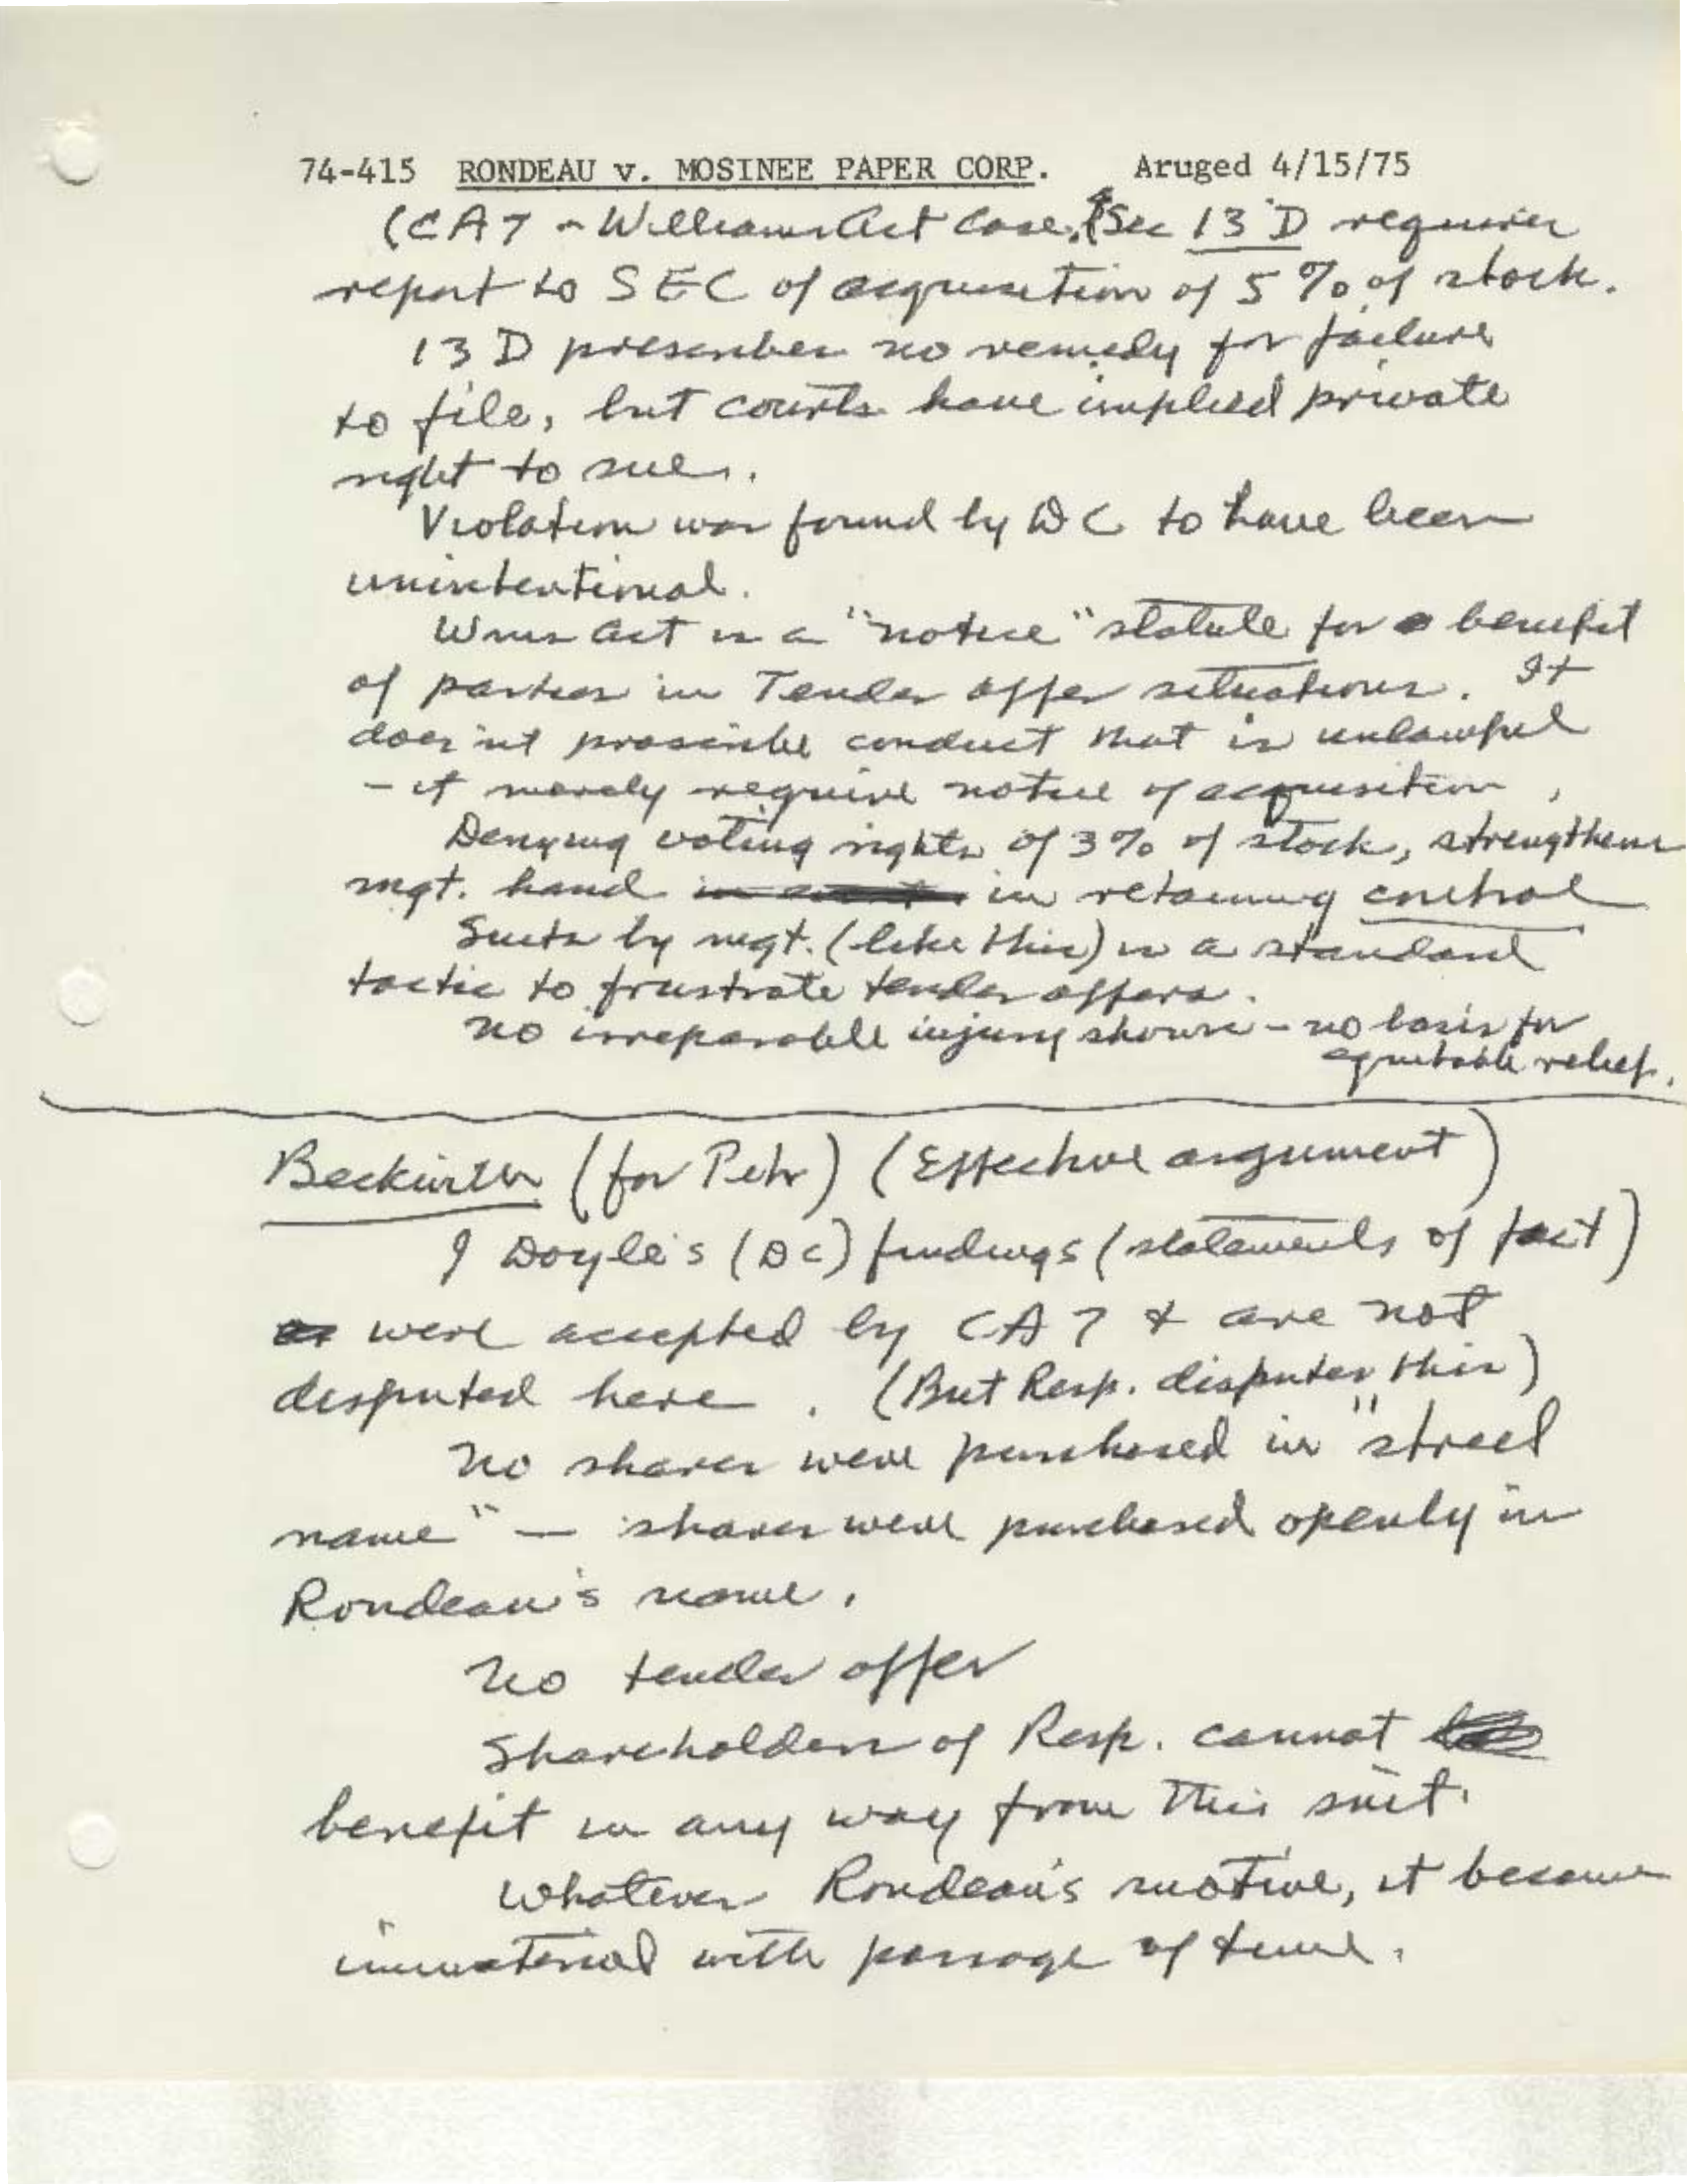 74-415 RONDEAU v. MOSINEE PAPER CORP. Aruged 4/15/75
(CA7 - Williams Act case. (Sec 13 D requires
report to SEC of acquisition of 5% of stock.
13 D prescribes no remedy for failure
to file, but courts have implied private
right to sue.
Violation was found by DC to have been
unintentional.
Wms Act is a "notice" statute for benefit
of parties in Tender offer situations. It
does'nt proscribe conduct that is unlawful
- it merely require notice of acquisition,
Denying voting rights of 3% of stock, strengthens
mgt. hand in retaining control
Suits by mgt. (like this) is a standard
tactic to frustrate tender offers.
No irreparable injury shown - no basis for
equitable relief.
Beckwith (for Petr) (Effective argument)
J Doyle's (DC) findings (statements of fact)
were accepted by CA7 & are not
disputed here. (But Resp. disputes this)
No shares were purchased in "street
name" — shares were purchased openly in
Rondeau's name.
No tender offer
Shareholders of Resp. cannot
benefit in any way from this suit.
Whatever Rondeau's motive, it became
immaterial with passage of time.